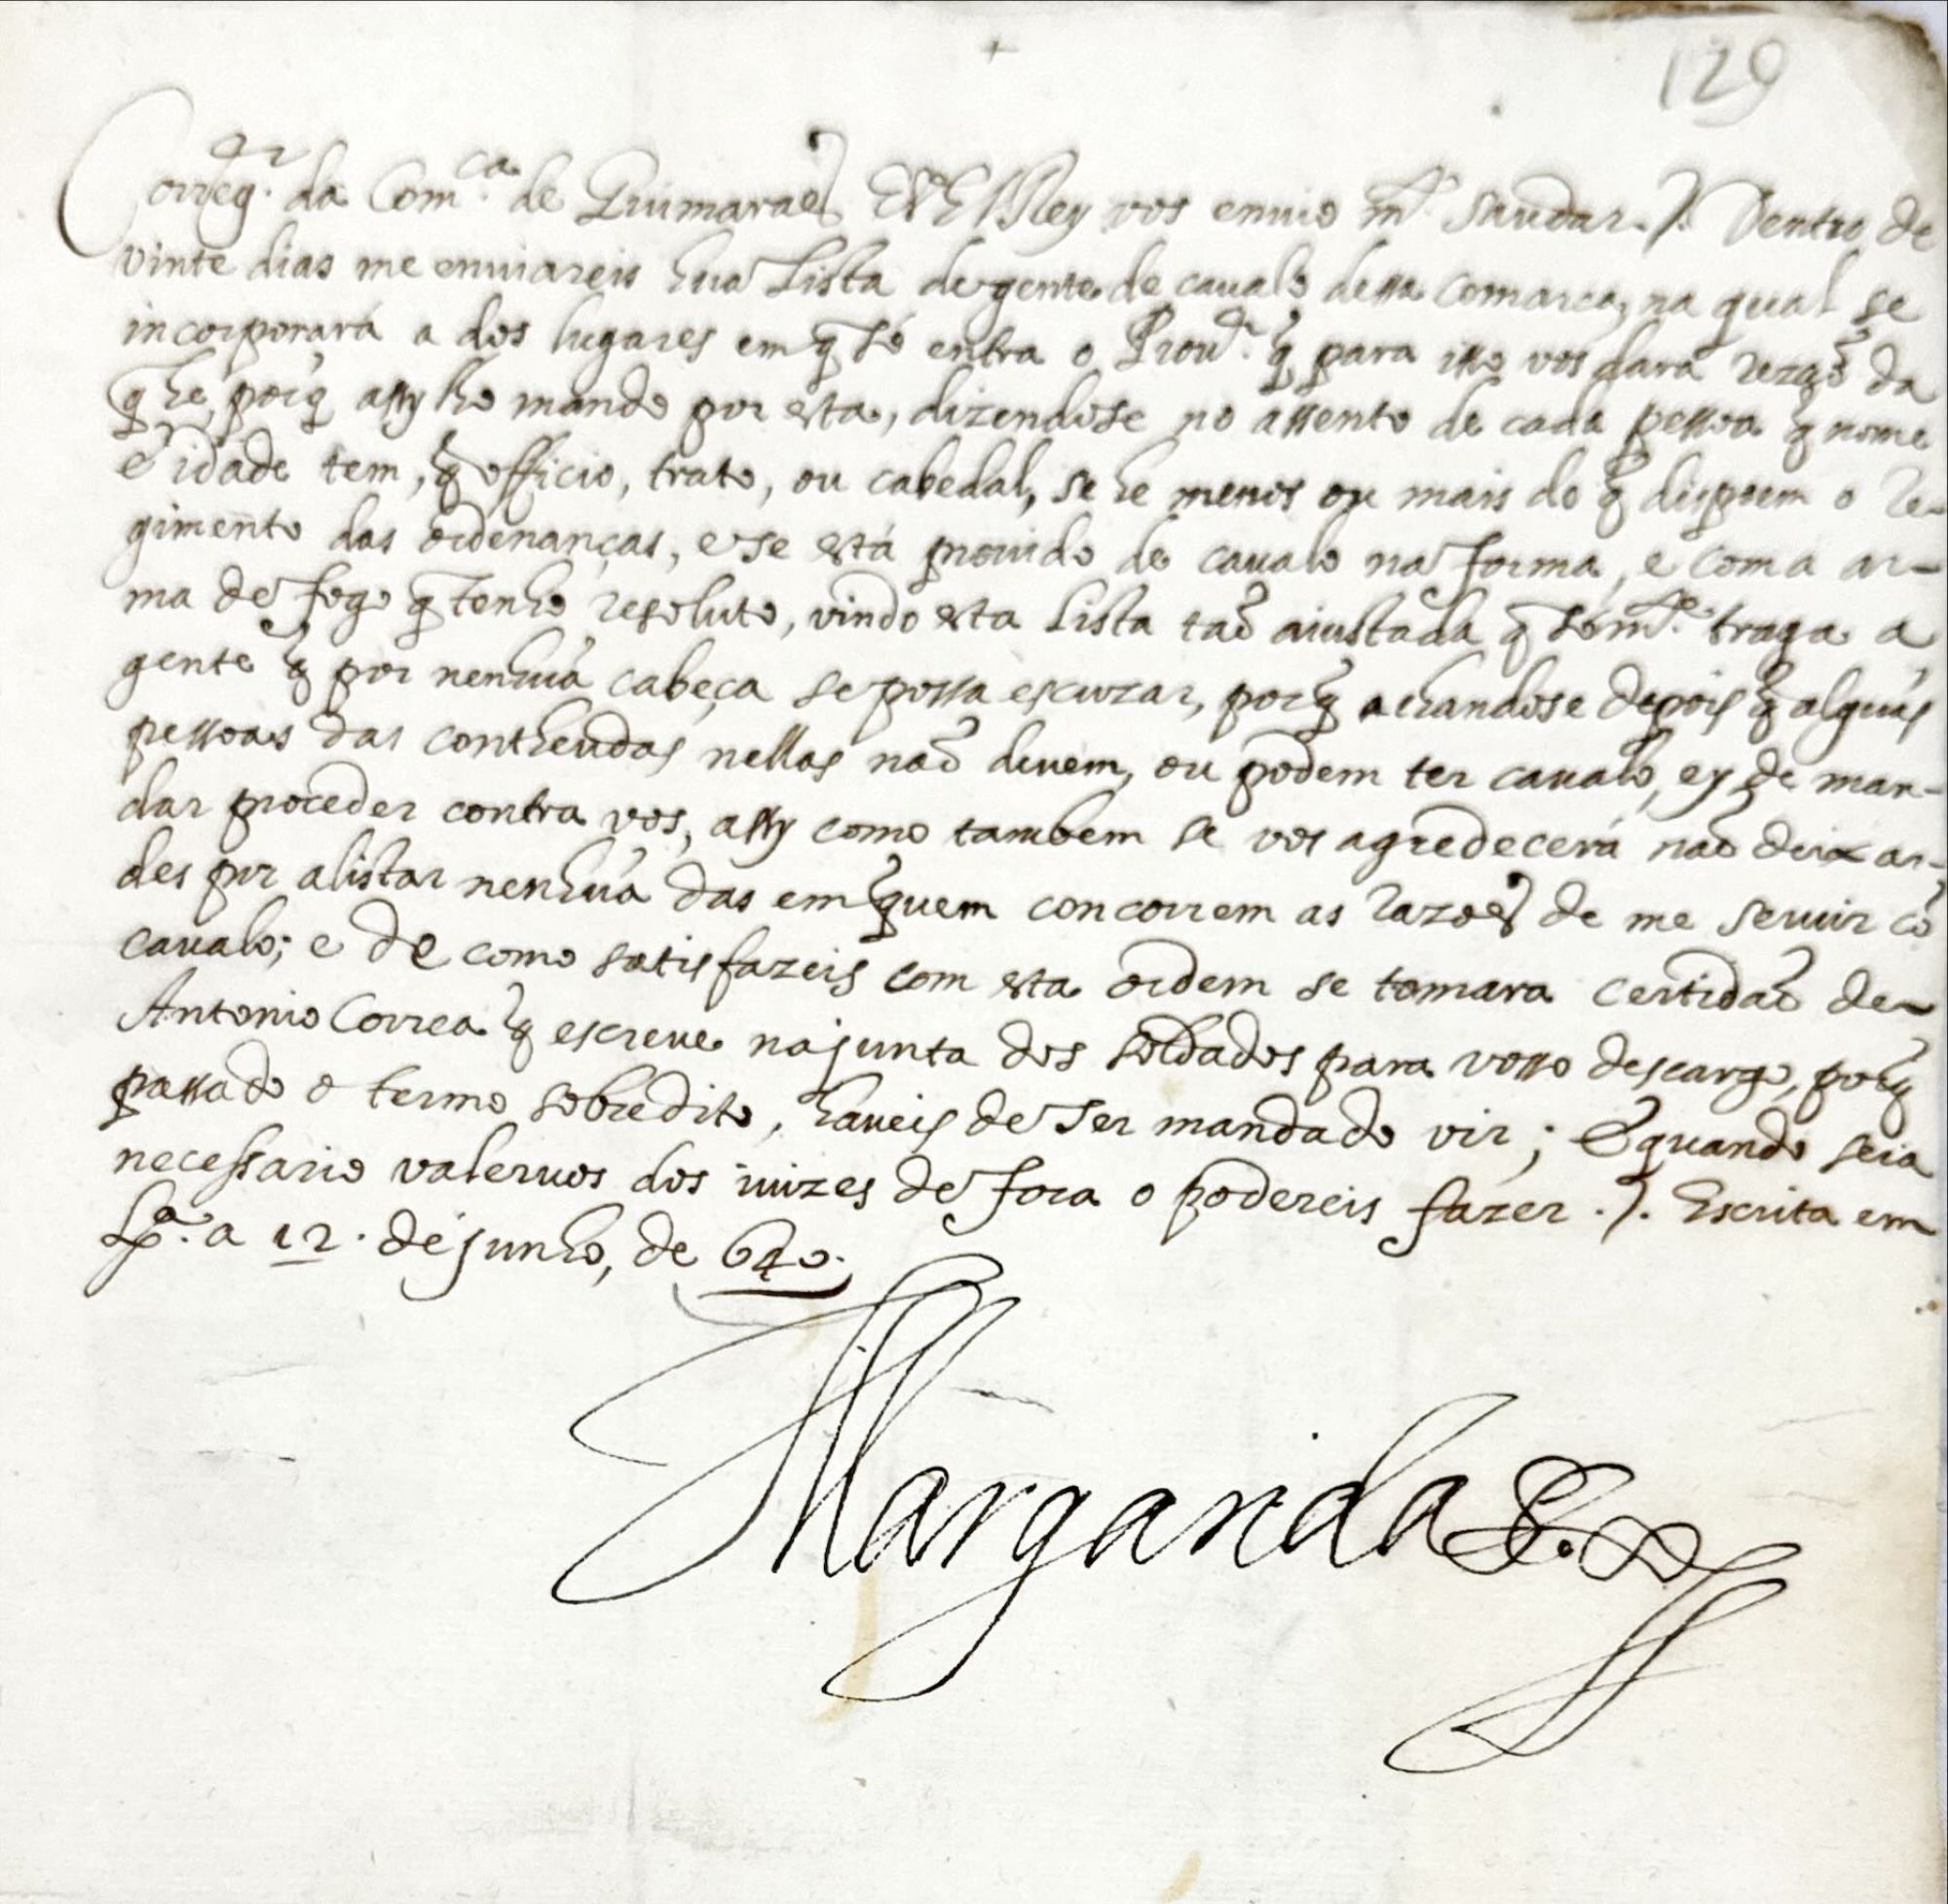 129
Correg.or da Com.ca de Guimaraes Eu ElRey vos enuio m.to saudar ./. Dentro de
vinte dias me enuiareis hua Lista de gente de caualo dessa comarca, na qual se
incorporará a dos lugares em q̃ só entra o Prou.or q̃ para isso vos dara rezaõ da
q̃ he, porq̃ assy lho mando por esta, dizendose no assento de cada pessoa q̃ nome
e idade tem, q̃ officio, trato, ou cabedal, se he menos ou mais do q̃ dispoem o Re-
gimento das ordenanças, e se está prouido de caualo na forma, e com a ar-
ma de fogo q̃ tenho resoluto, vindo esta Lista taõ aiustada q̃ sóm.te traga a
gente q̃ por nenhuã cabeça se possa escuzar, porq̃ achandose depois q̃ alguãs
pessoas das contheudas nellas naõ deuem, ou podem ter caualo, ey de man-
dar proceder contra vos, assy como tambem se vos agredecerá naõ deixar-
des por alistar nenhuã das em quem concorrem as razoes de me seruir cõ
caualo; e de como satisfazeis com esta ordem se tomara certidaõ de
Antonio Correa q̃ escreue na junta dos soldados para vosso descargo, porq̃
passado o termo sobredito, haueis de ser mandado vir; E quando seia
necessario valeruos dos iuizes de fora o podereis fazer ./. Escrita em
Lx.a a 12. de junho, de 640.
Margarida